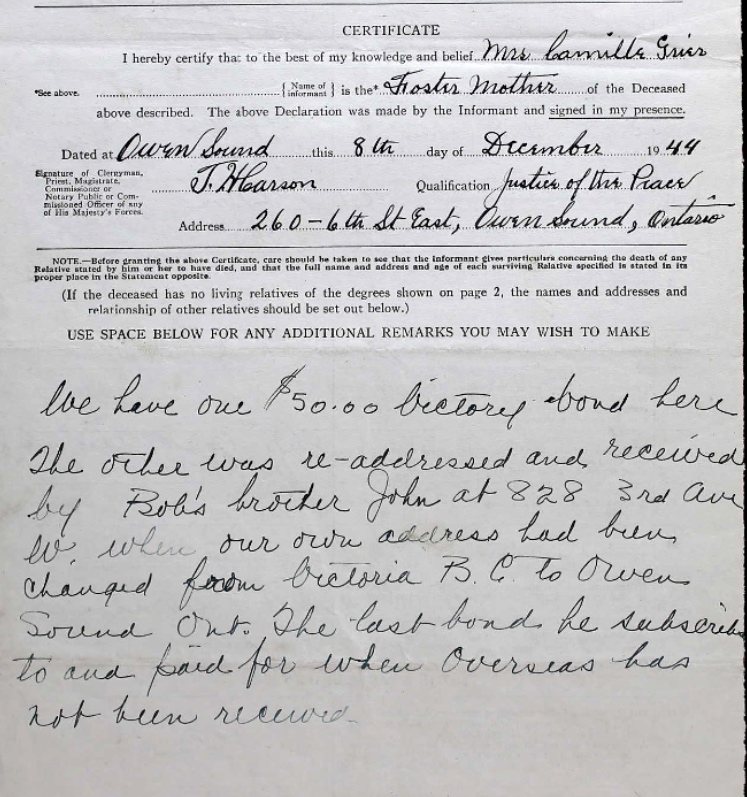 CERTIFICATE
I hereby certify that to the best of my knowledge and belief Mrs Camille Grier
*See above. { Name of informant } is the* Foster Mother of the Deceased
above described. The above Declaration was made by the Informant and signed in my presence.
Dated at Owen Sound this 8th day of December 1944
Signature of Clergyman,
Priest, Magistrate,
Commissioner or
Notary Public or Com-
missioned Officer of any
of His Majesty's Forces.
J. H Carson Qualification Justice of the Peace
Address 260-6th St East, Owen Sound, Ontario
NOTE.—Before granting the above Certificate, care should be taken to see that the informant gives particulars concerning the death of any
Relative stated by him or her to have died, and that the full name and address and age of each surviving Relative specified is stated in its
proper place in the Statement opposite.
(If the deceased has no living relatives of the degrees shown on page 2, the names and addresses and
relationship of other relatives should be set out below.)
USE SPACE BELOW FOR ANY ADDITIONAL REMARKS YOU MAY WISH TO MAKE
We have one $50.00 Victory bond here
The other was re-addressed and received
by Bob's brother John at 828 3rd Ave
W. when our own address had been
changed from Victoria B.C. to Owen
Sound Ont. The last bond he subscrib
to and paid for when Overseas has
not been received